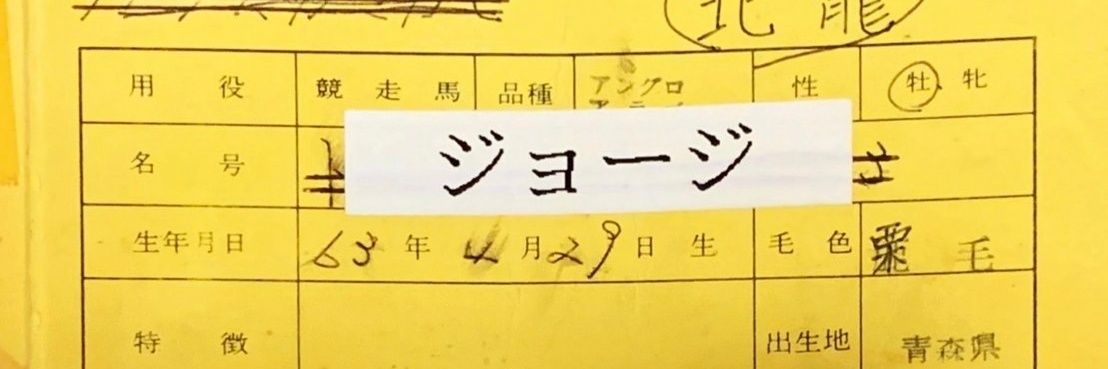 北龍
用役 競走馬 品種 アングロ 性 牡・牝
名号 ジョージ
生年月日 63年4月29日生 毛色 栗毛
特徴 出生地 青森県